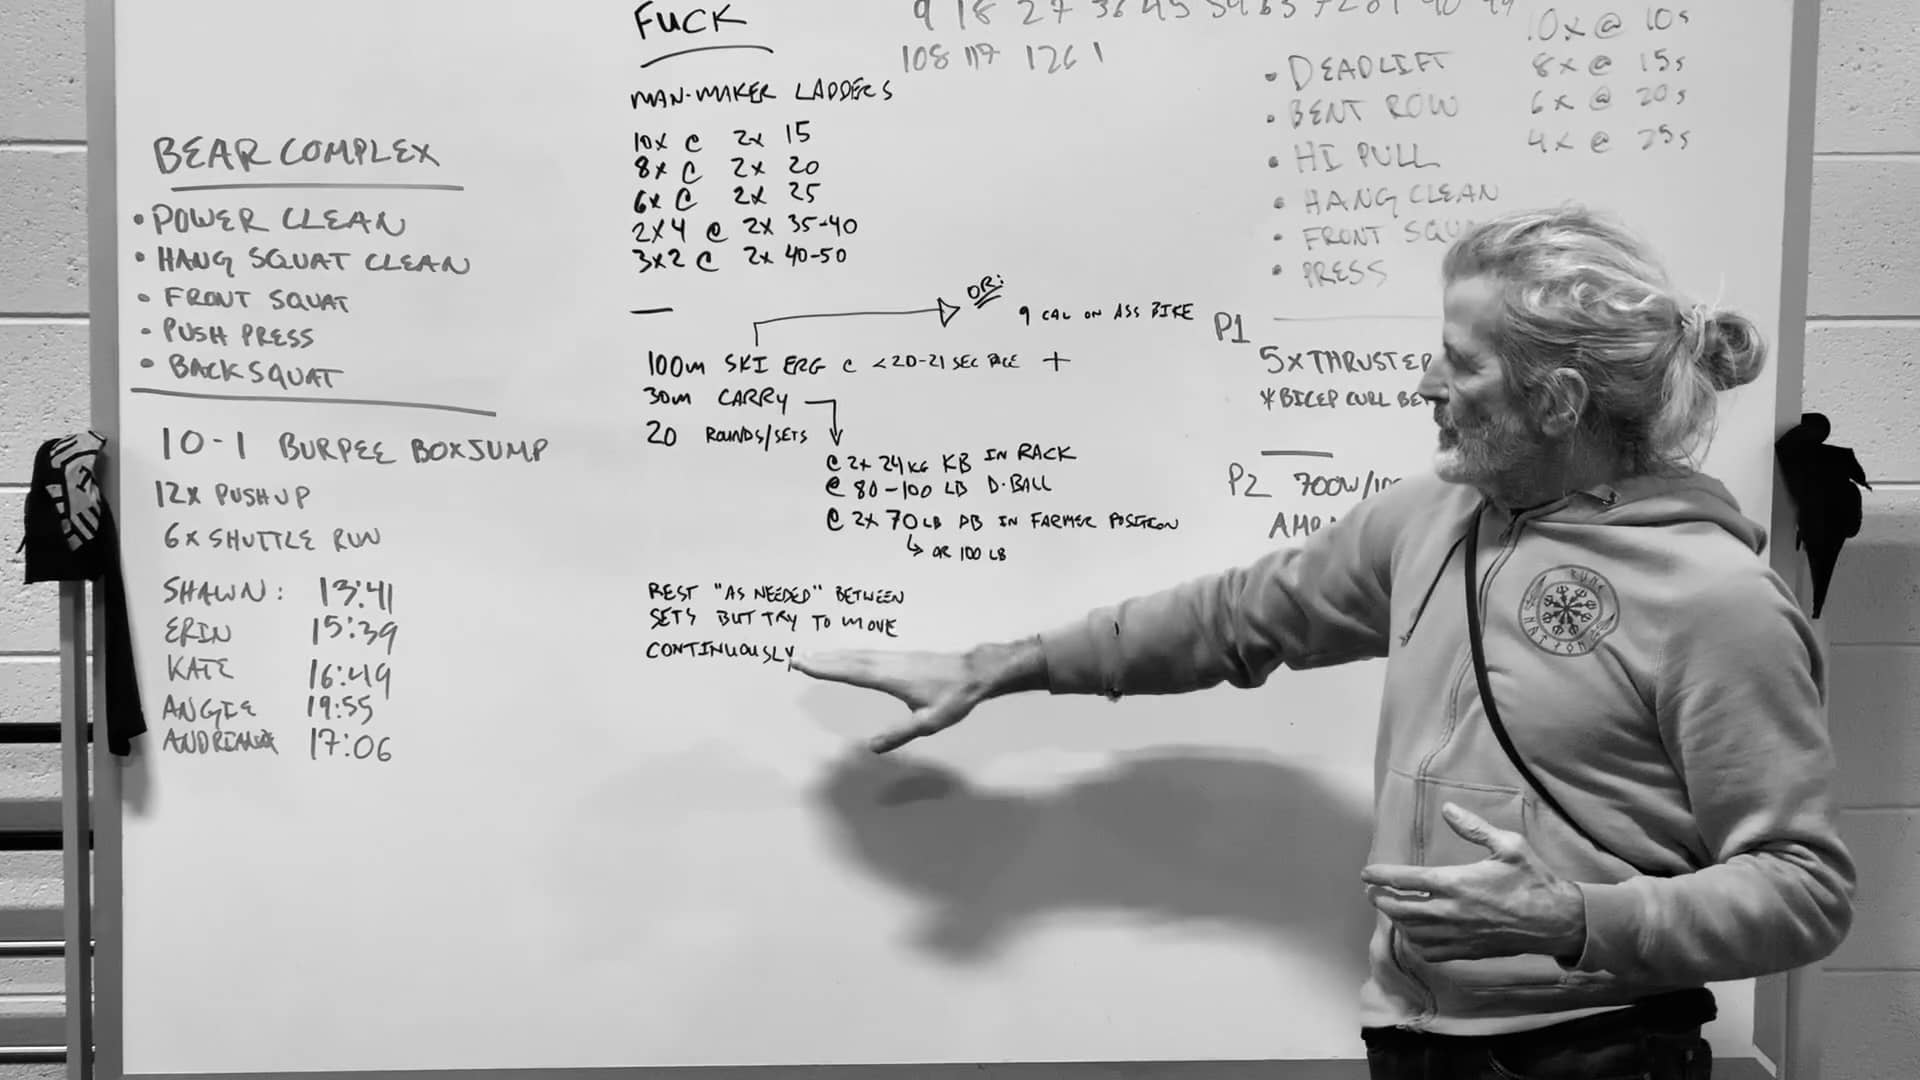 BEAR COMPLEX
• POWER CLEAN
• HANG SQUAT CLEAN
• FRONT SQUAT
• PUSH PRESS
• BACK SQUAT
10-1 BURPEE BOXJUMP
12X PUSHUP
6X SHUTTLE RUN
SHAWN: 13:41
ERIN 15:39
KATE 16:49
ANGIE 19:55
ANDRIANA 17:06
FUCK
MAN-MAKER LADDERS
10X @ 2X 15
8X @ 2X 20
6X @ 2X 25
2X4 @ 2X 35-40
3X2 @ 2X 40-50
OR:
9 CAL ON ASS BIKE
100m SKI ERG @ <20-21 SEC PACE +
30m CARRY
20 ROUNDS/SETS
@ 2X 24KG KB IN RACK
@ 80-100 LB D-BALL
@ 2X 70LB DB IN FARMER POSITION
OR 100 LB
REST "AS NEEDED" BETWEEN
SETS BUT TRY TO MOVE
CONTINUOUSLY
9 18 27 36 45 54 63 72 81 90 99
108 117 126 1
10X @ 10s
8X @ 15s
6X @ 20s
4X @ 25s
• DEADLIFT
• BENT ROW
• HI PULL
• HANG CLEAN
• FRONT SQU
• PRESS
P1
5X THRUSTER
* BICEP CURL BE
P2 700W/
RUNE NATION